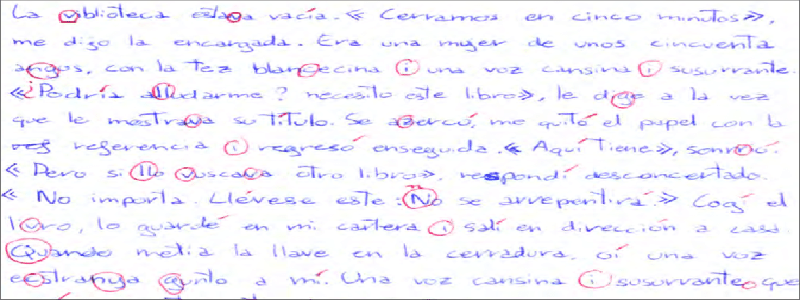 La viblioteca estava vacía. « Cerramos en cinco minutos»,
me dijo la encargada. Era una mujer de unos cincuenta
angos, con la tez blancecina i una voz cansina i susurrante.
«¿Podría alludarme? necesito este libro», le dige a la vez
que le mostrava su título. Se acercó, me quitó el papel con la
referencia i regresó enseguida. « Aquí Tiene», sonrió.
« Pero si llo vuscava otro libro», respondí desconcertado.
« No importa. Llévese este. No se arrepentirá.» Cogí el
livro, lo guardé en mi cartera i salí en dirección a casa.
Quando metía la llave en la cerradura, oí una voz
estranya gunto a mí. Una voz cansina i susurrante que